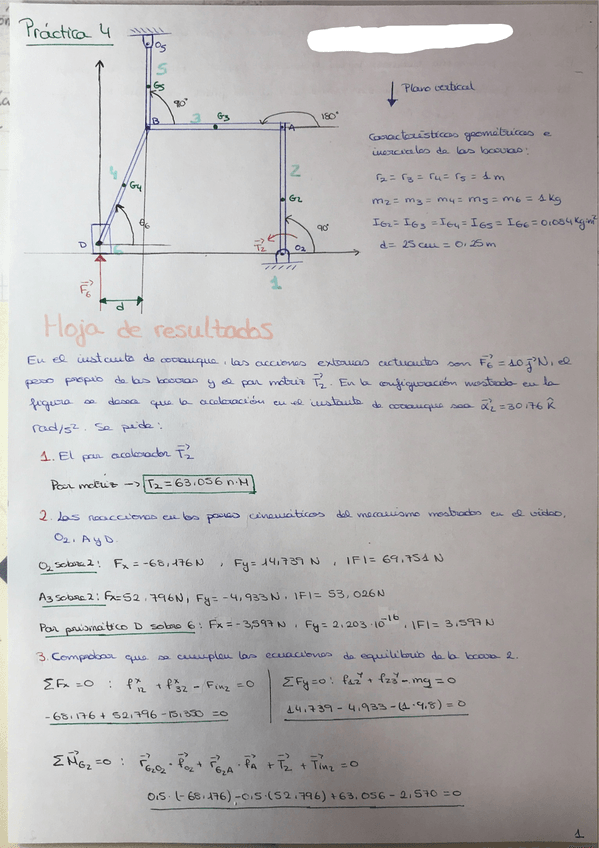 Práctica 4
O5
5
G5
90°
B
3
G3
180°
A
4
G4
2
G2
θ6
90°
D
6
T2
O2
F6
d
1
Plano vertical
Características geométricas e
inerciales de las barras:
r2 = r3 = r4 = r5 = 1 m
m2 = m3 = m4 = m5 = m6 = 1 Kg
IG2 = IG3 = IG4 = IG5 = IG6 = 0,084 Kg·m²
d = 25 cm = 0,25 m
Hoja de resultados
En el instante de arranque, las acciones externas actuantes son F6 = 10 j N, el
peso propio de las barras y el par motriz T2. En la configuración mostrada en la
figura se desea que la aceleración en el instante de arranque sea α2 = 30,76 k
rad/s². Se pide:
1. El par acelerador T2
Par motriz → T2 = 63,056 n·M
2. Las reacciones en los pares cinemáticos del mecanismo mostrados en el video,
O2, A y D.
O2 sobre 2: Fx = -68,176 N , Fy = 14,739 N , |F| = 69,751 N
A3 sobre 2: Fx = 52,796 N, Fy = -4,933 N, |F| = 53,026 N
Par prismático D sobre 6: Fx = -3,597 N, Fy = 2,203·10⁻¹⁶, |F| = 3,597 N
3. Comprobar que se cumplen las ecuaciones de equilibrio de la barra 2.
ΣFx = 0 : f12^x + f32^x - Fin2 = 0
-68,176 + 52,796 - 15,380 = 0
ΣFy = 0: f12^y + f23^y - mg = 0
14,739 - 4,933 - (1·9,8) = 0
ΣMG2 = 0 : rG2O2 · fO2 + rG2A · fA + T2 + Tin2 = 0
0,5·(-68,176) - 0,5·(52,796) + 63,056 - 2,570 = 0
1